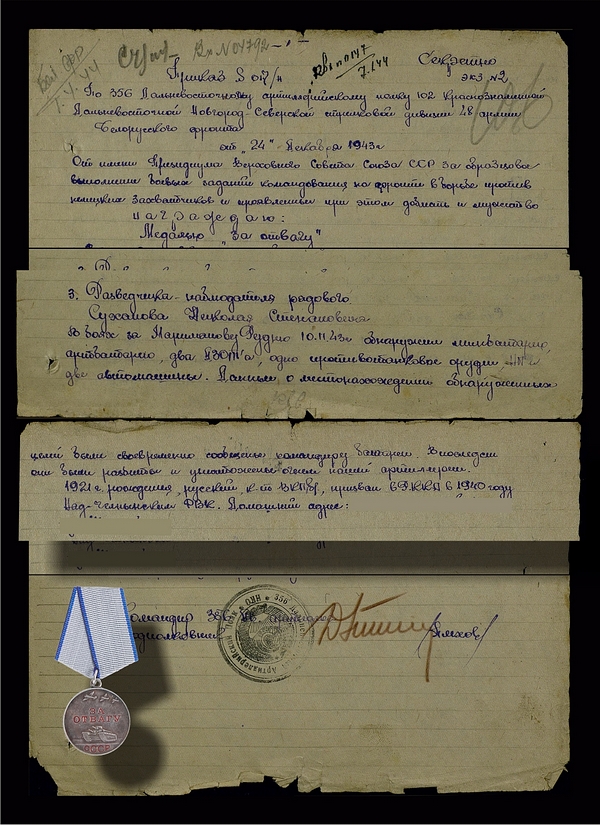 Вх N 04792
Секретно
экз. N2
Приказ
По 356 Дальневосточному артиллерийскому полку 102 Краснознаменной
Дальневосточной Новгород-Северской стрелковой дивизии 48 армии
Белорусского фронта
от "24" Декабря 1943 г
От имени Президиума Верховного Совета Союза ССР за образцовое
выполнение боевых заданий командования на фронте в борьбе против
немецких захватчиков и проявленные при этом доблесть и мужество
награждаю:
Медалью "За отвагу"
3. Разведчика-наблюдателя рядового
Суханова Николая Степановича
В боях за 10.11.43г обнаружил минбатарею,
артбатарею, два ДЗОТ'а, одно противотанковое орудие, НП и
две автомашины. Данные о местонахождении обнаруженных
целей были своевременно сообщены командиру батареи. Впоследствии
они были разбиты и уничтожены огнем нашей артиллерии.
1921 г. рождения, русский, к-т ВКП/б/, призван в РККА в 1940 году
РВК. Домашний адрес:
Командир 356
ЗА
ОТВАГУ
СССР